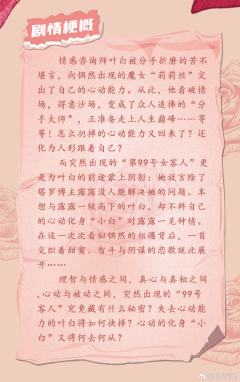 剧情梗概
情感咨询师叶白被分手折磨的苦不
堪言,向偶然出现的魔女“莉莉丝”交
出了自己的心动能力。从此,他看破情
场,得意沙场,变成了众人追捧的“分
手大师”,正准备走上人生巅峰……等
等!怎么切掉的心动能力又回来了?还
化为人形跟着自己?
而突然出现的“第99号女客人”更
是为叶白的前途蒙上阴影:她放言除了
塔罗博主露露没人能解决她的问题。本
想与露露一较高下的叶白,却不料自己
的心动化身“小白”对露露一见钟情。
在这一次次看似偶然的相遇背后,一首
交织着甜蜜、智斗与阴谋的恋歌就此展
开……
理智与情感之间,真心与真相之间
,心动与被动之间,突然出现的“99号
客人”究竟藏有什么秘密?失去心动能
力的叶白将如何抉择?心动的化身“小
白”又将何去何从?